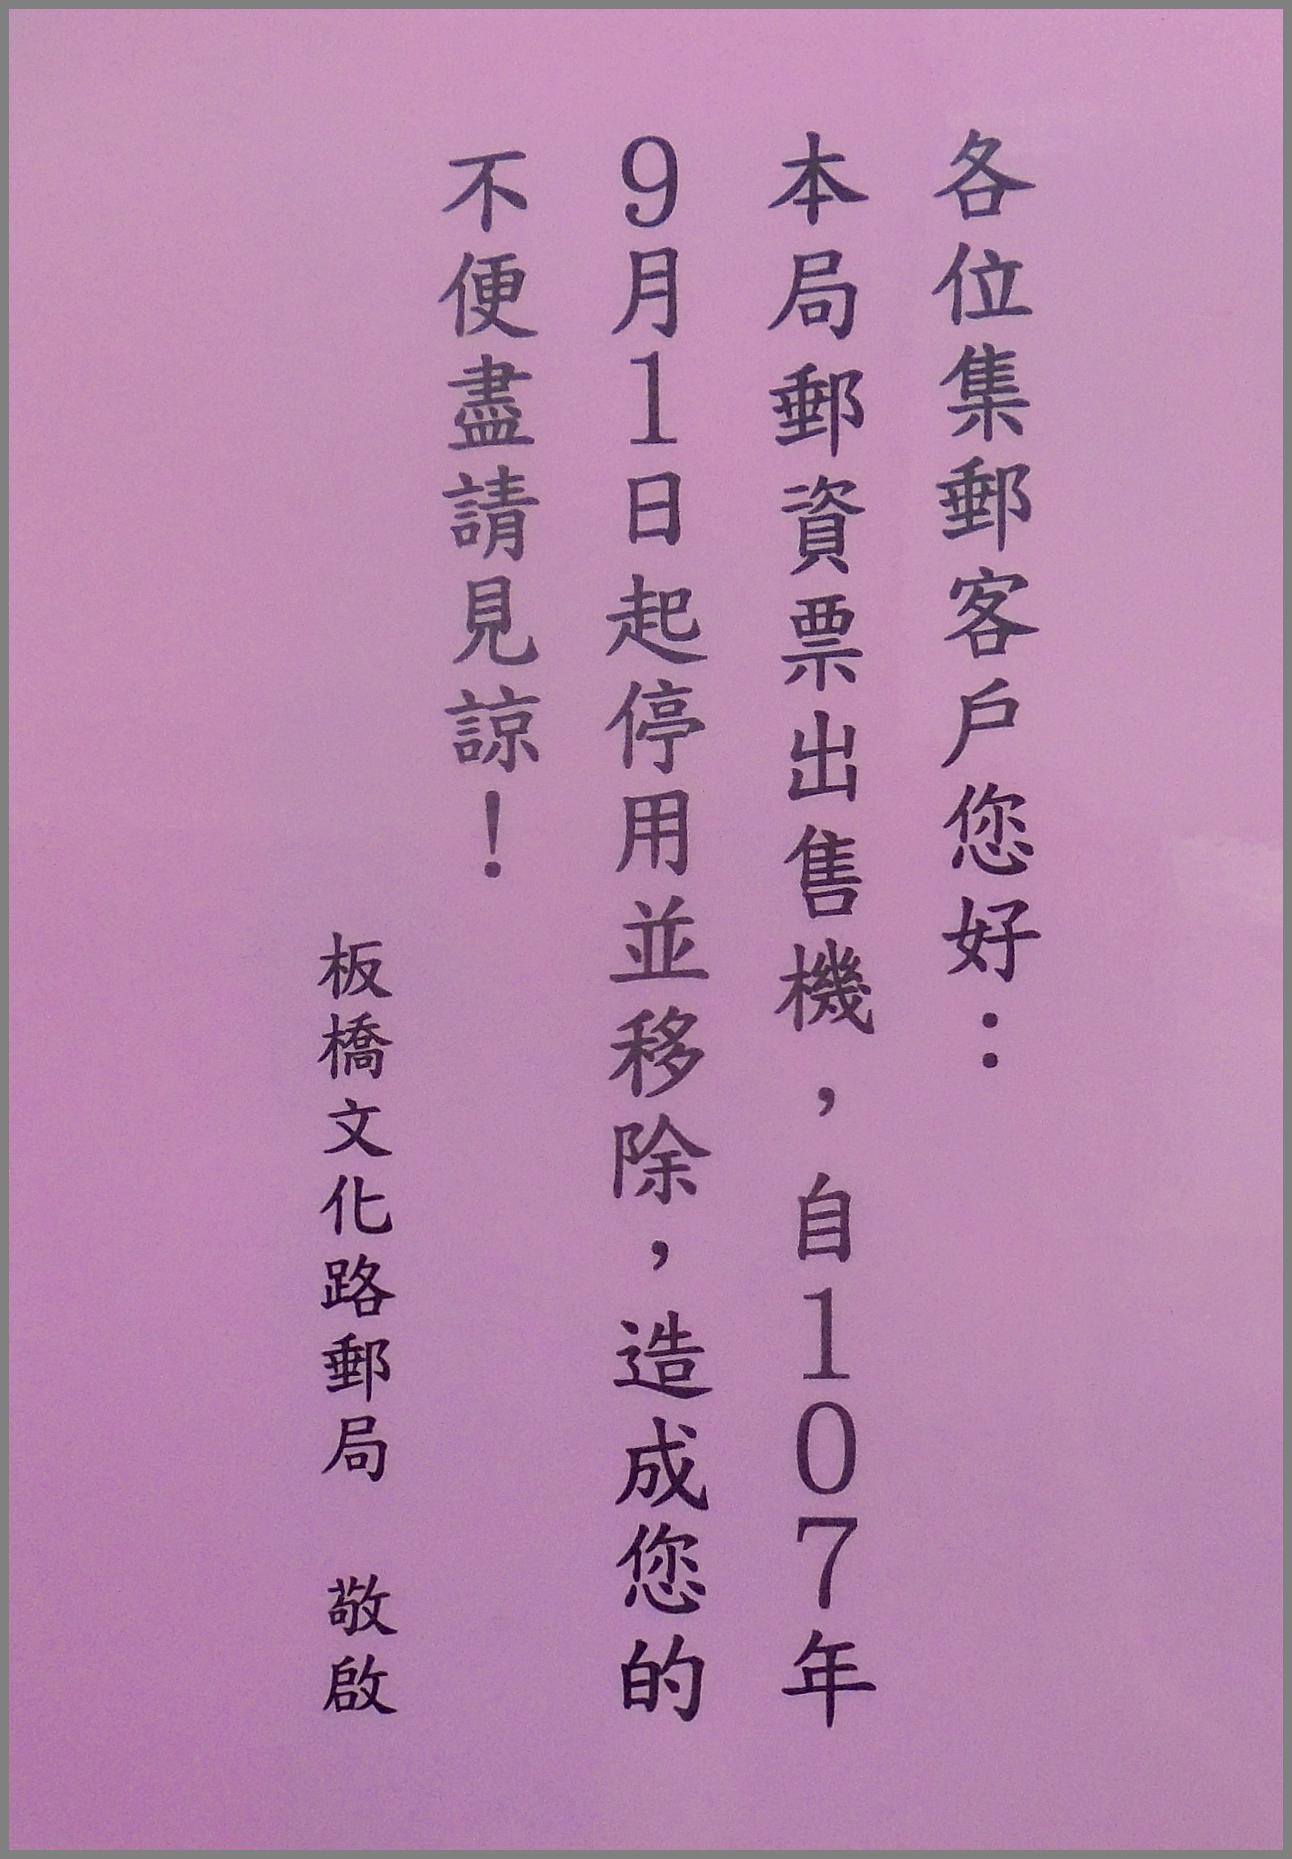 各位集郵客戶您好：
本局郵資票出售機，自107年
9月1日起停用並移除，造成您的
不便盡請見諒！
板橋文化路郵局　敬啟